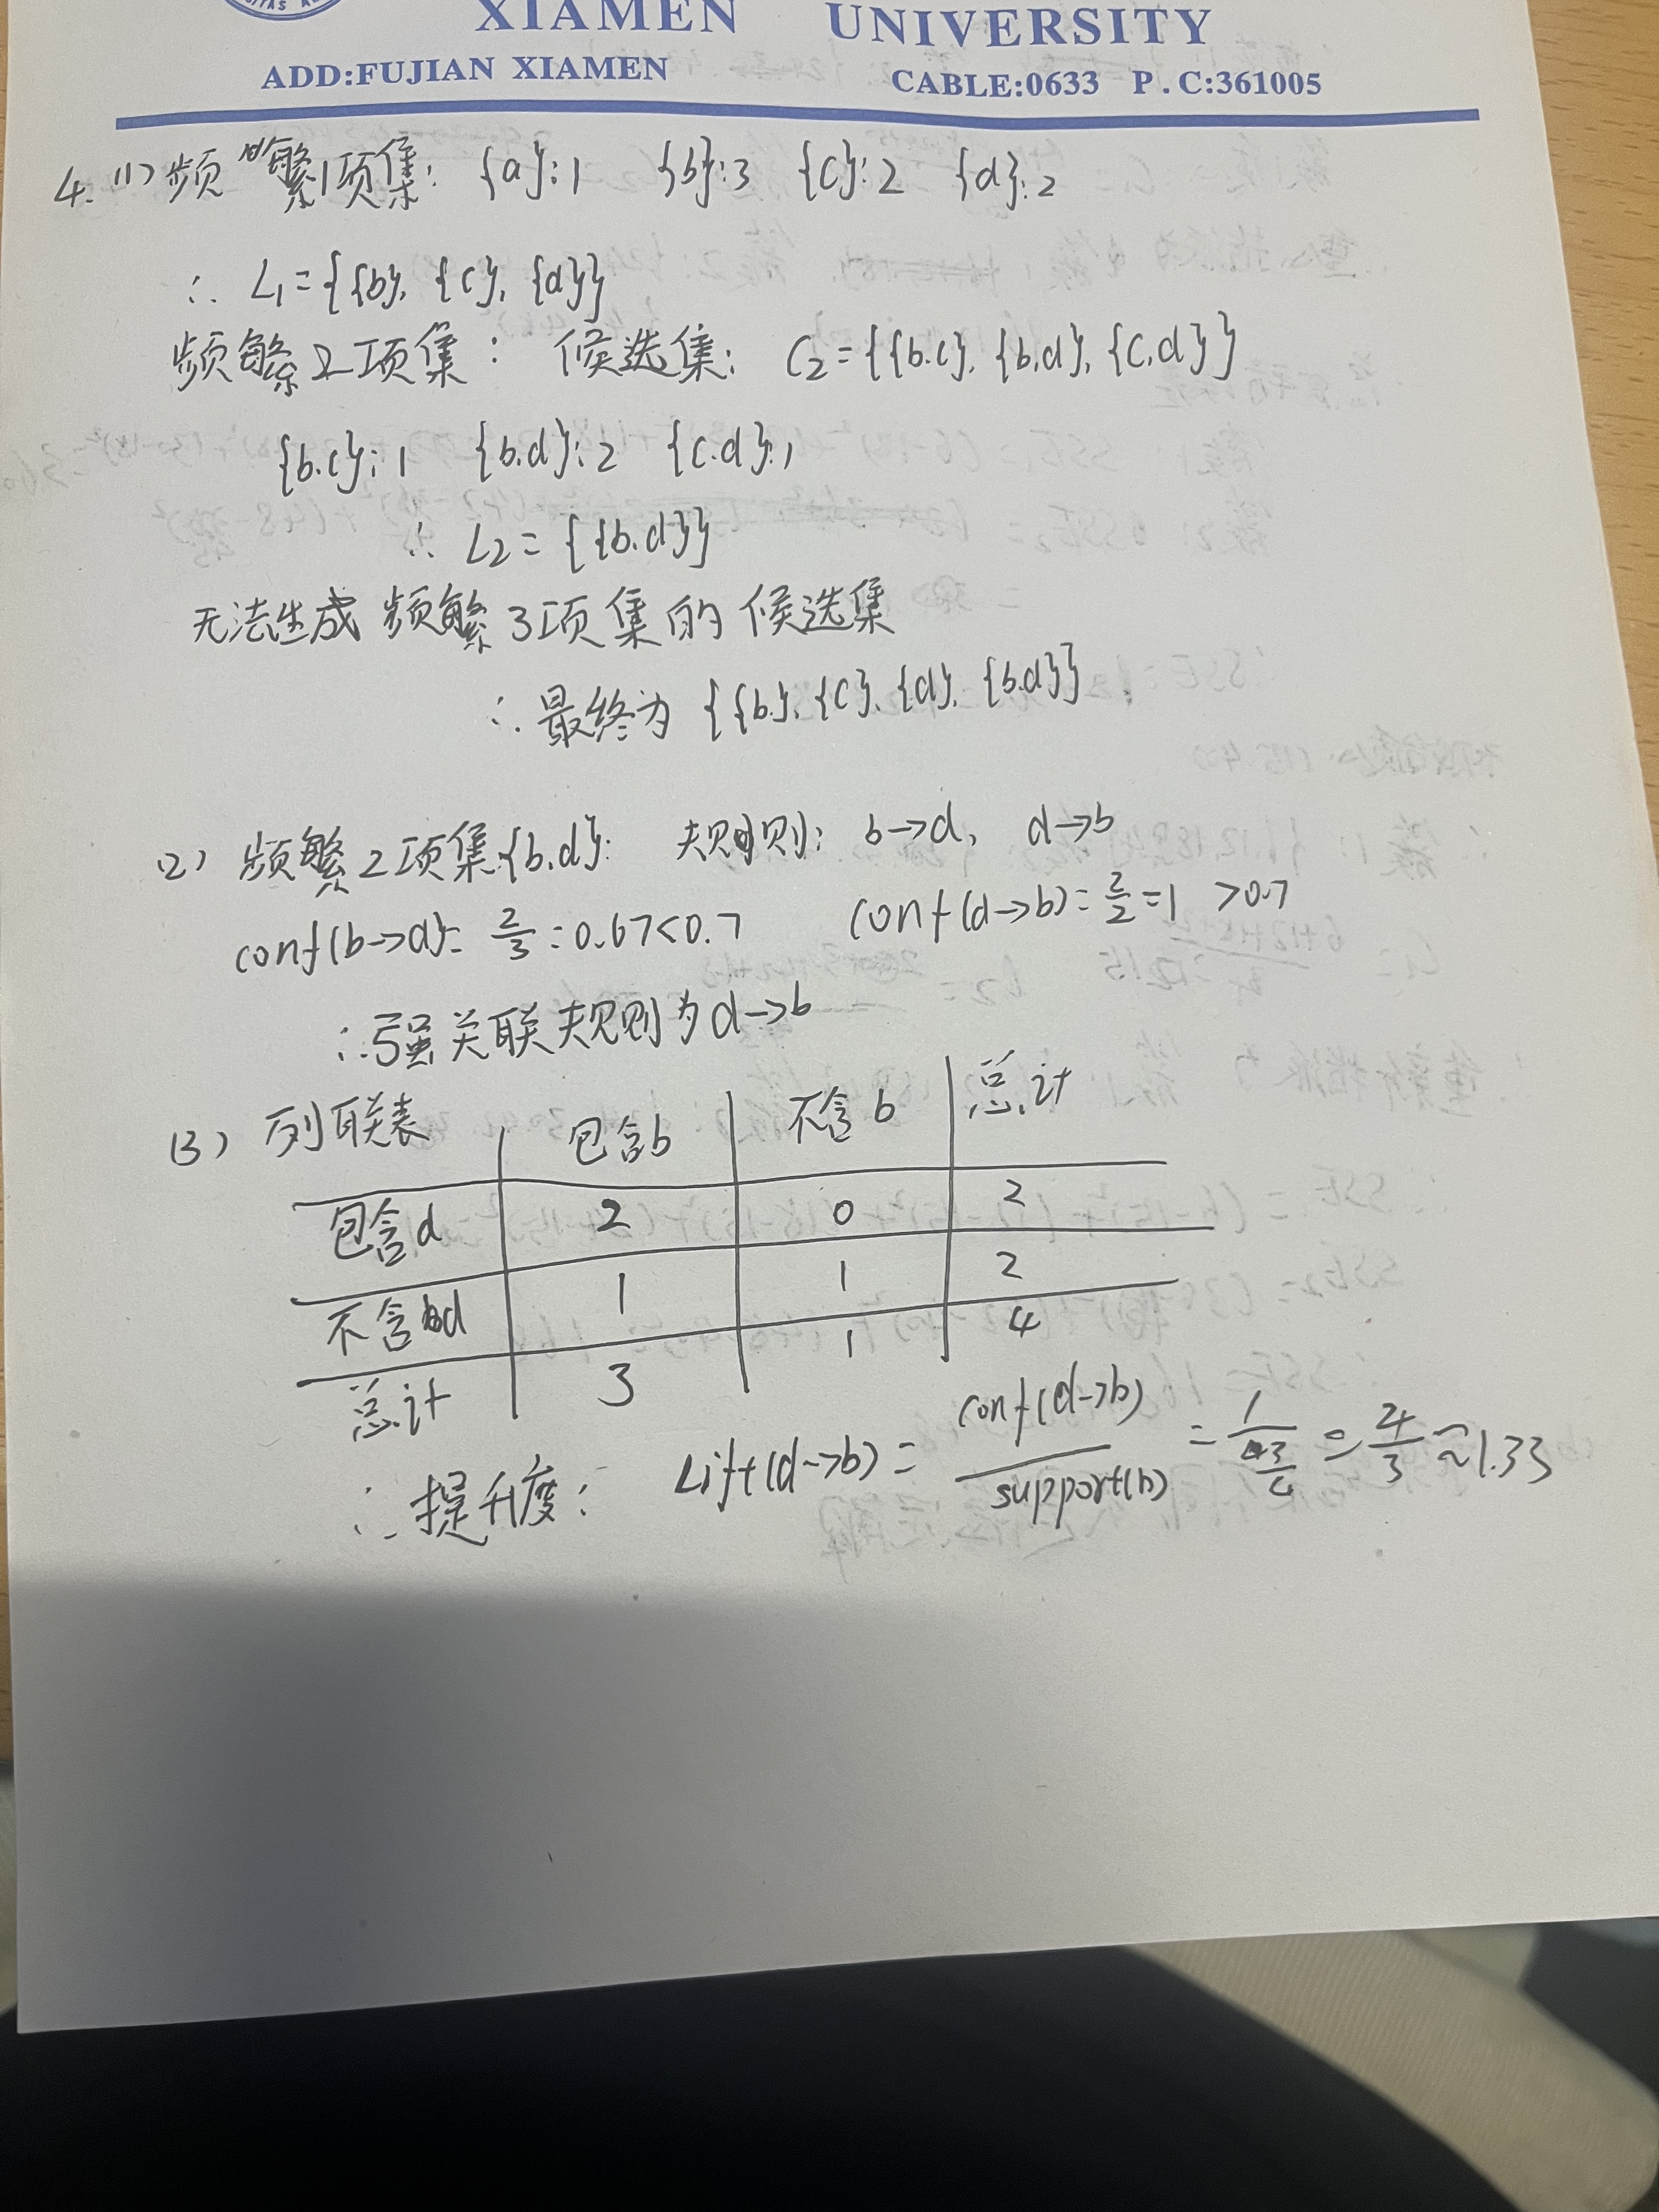 XIAMEN UNIVERSITY
ADD:FUJIAN XIAMEN CABLE:0633 P.C:361005
4. (1) 频繁1项集: {a}:1 {b}:3 {c}:2 {d}:2
∴ L₁={{b}, {c}, {d}}
频繁2项集: 候选集: C₂={{b.c}, {b,d}, {c.d}}
{b.c}:1 {b.d}:2 {c.d}:1
∴ L₂={{b.d}}
无法生成频繁3项集的候选集
∴最终为{{b}, {c}, {d}, {b.d}}
(2) 频繁2项集{b.d}: 规则: b→d, d→b
conf(b→d)= 2/3 =0.67<0.7 conf(d→b)= 2/2 =1 >0.7
∴强关联规则为d→b
(3) 列联表 包含b 不含b 总计
包含d 2 0 2
不含d 1 1 2
总计 3 1 4
∴提升度: Lift(d→b)= conf(d→b)/support(b) = 1/(3/4) = 4/3 ≈1.33